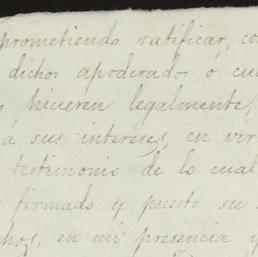 prometiendo ratificar, co
dichos apoderados ó cu
s hicieren legalmente,
á sus intereses, en vir
testimonio de lo cual
firmado y puesto su
hos, en mi presencia y